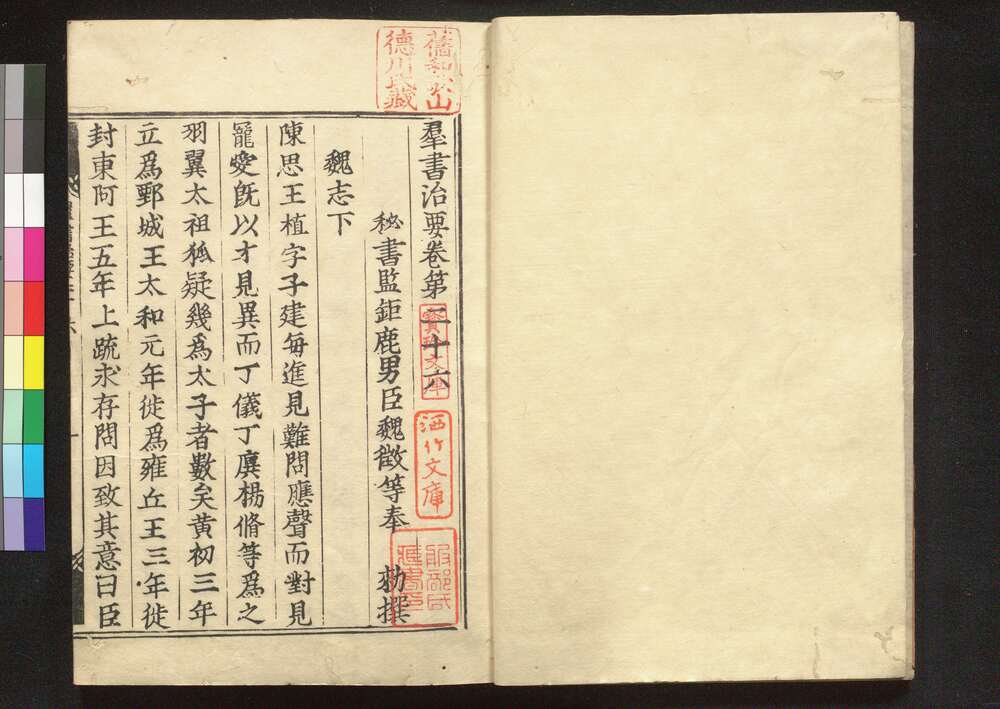 羣書治要卷第二十六
秘書監鉅鹿男臣魏徵等奉　勅撰
魏志下
陳思王植字子建每進見難問應聲而對見
寵愛旣以才見異而丁儀丁廙楊脩等爲之
羽翼太祖狐疑幾爲太子者數矣黃初三年
立爲鄄城王太和元年徙爲雍丘王三年徙
封東阿王五年上疏求存問因致其意曰臣
舊和歌山
德川氏藏
洒竹文庫